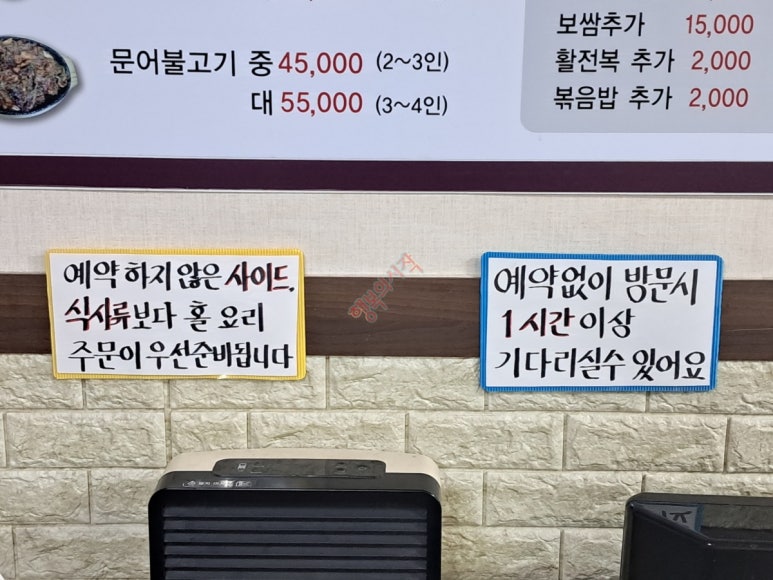 문어불고기 중 45,000 (2~3인)
대 55,000 (3~4인)
보쌈추가 15,000
활전복 추가 2,000
볶음밥 추가 2,000
예약하지 않은 사이드,
식사류보다 홀 요리
주문이 우선준비됩니다
예약없이 방문시
1시간이상
기다리실수 있어요
행복의시작